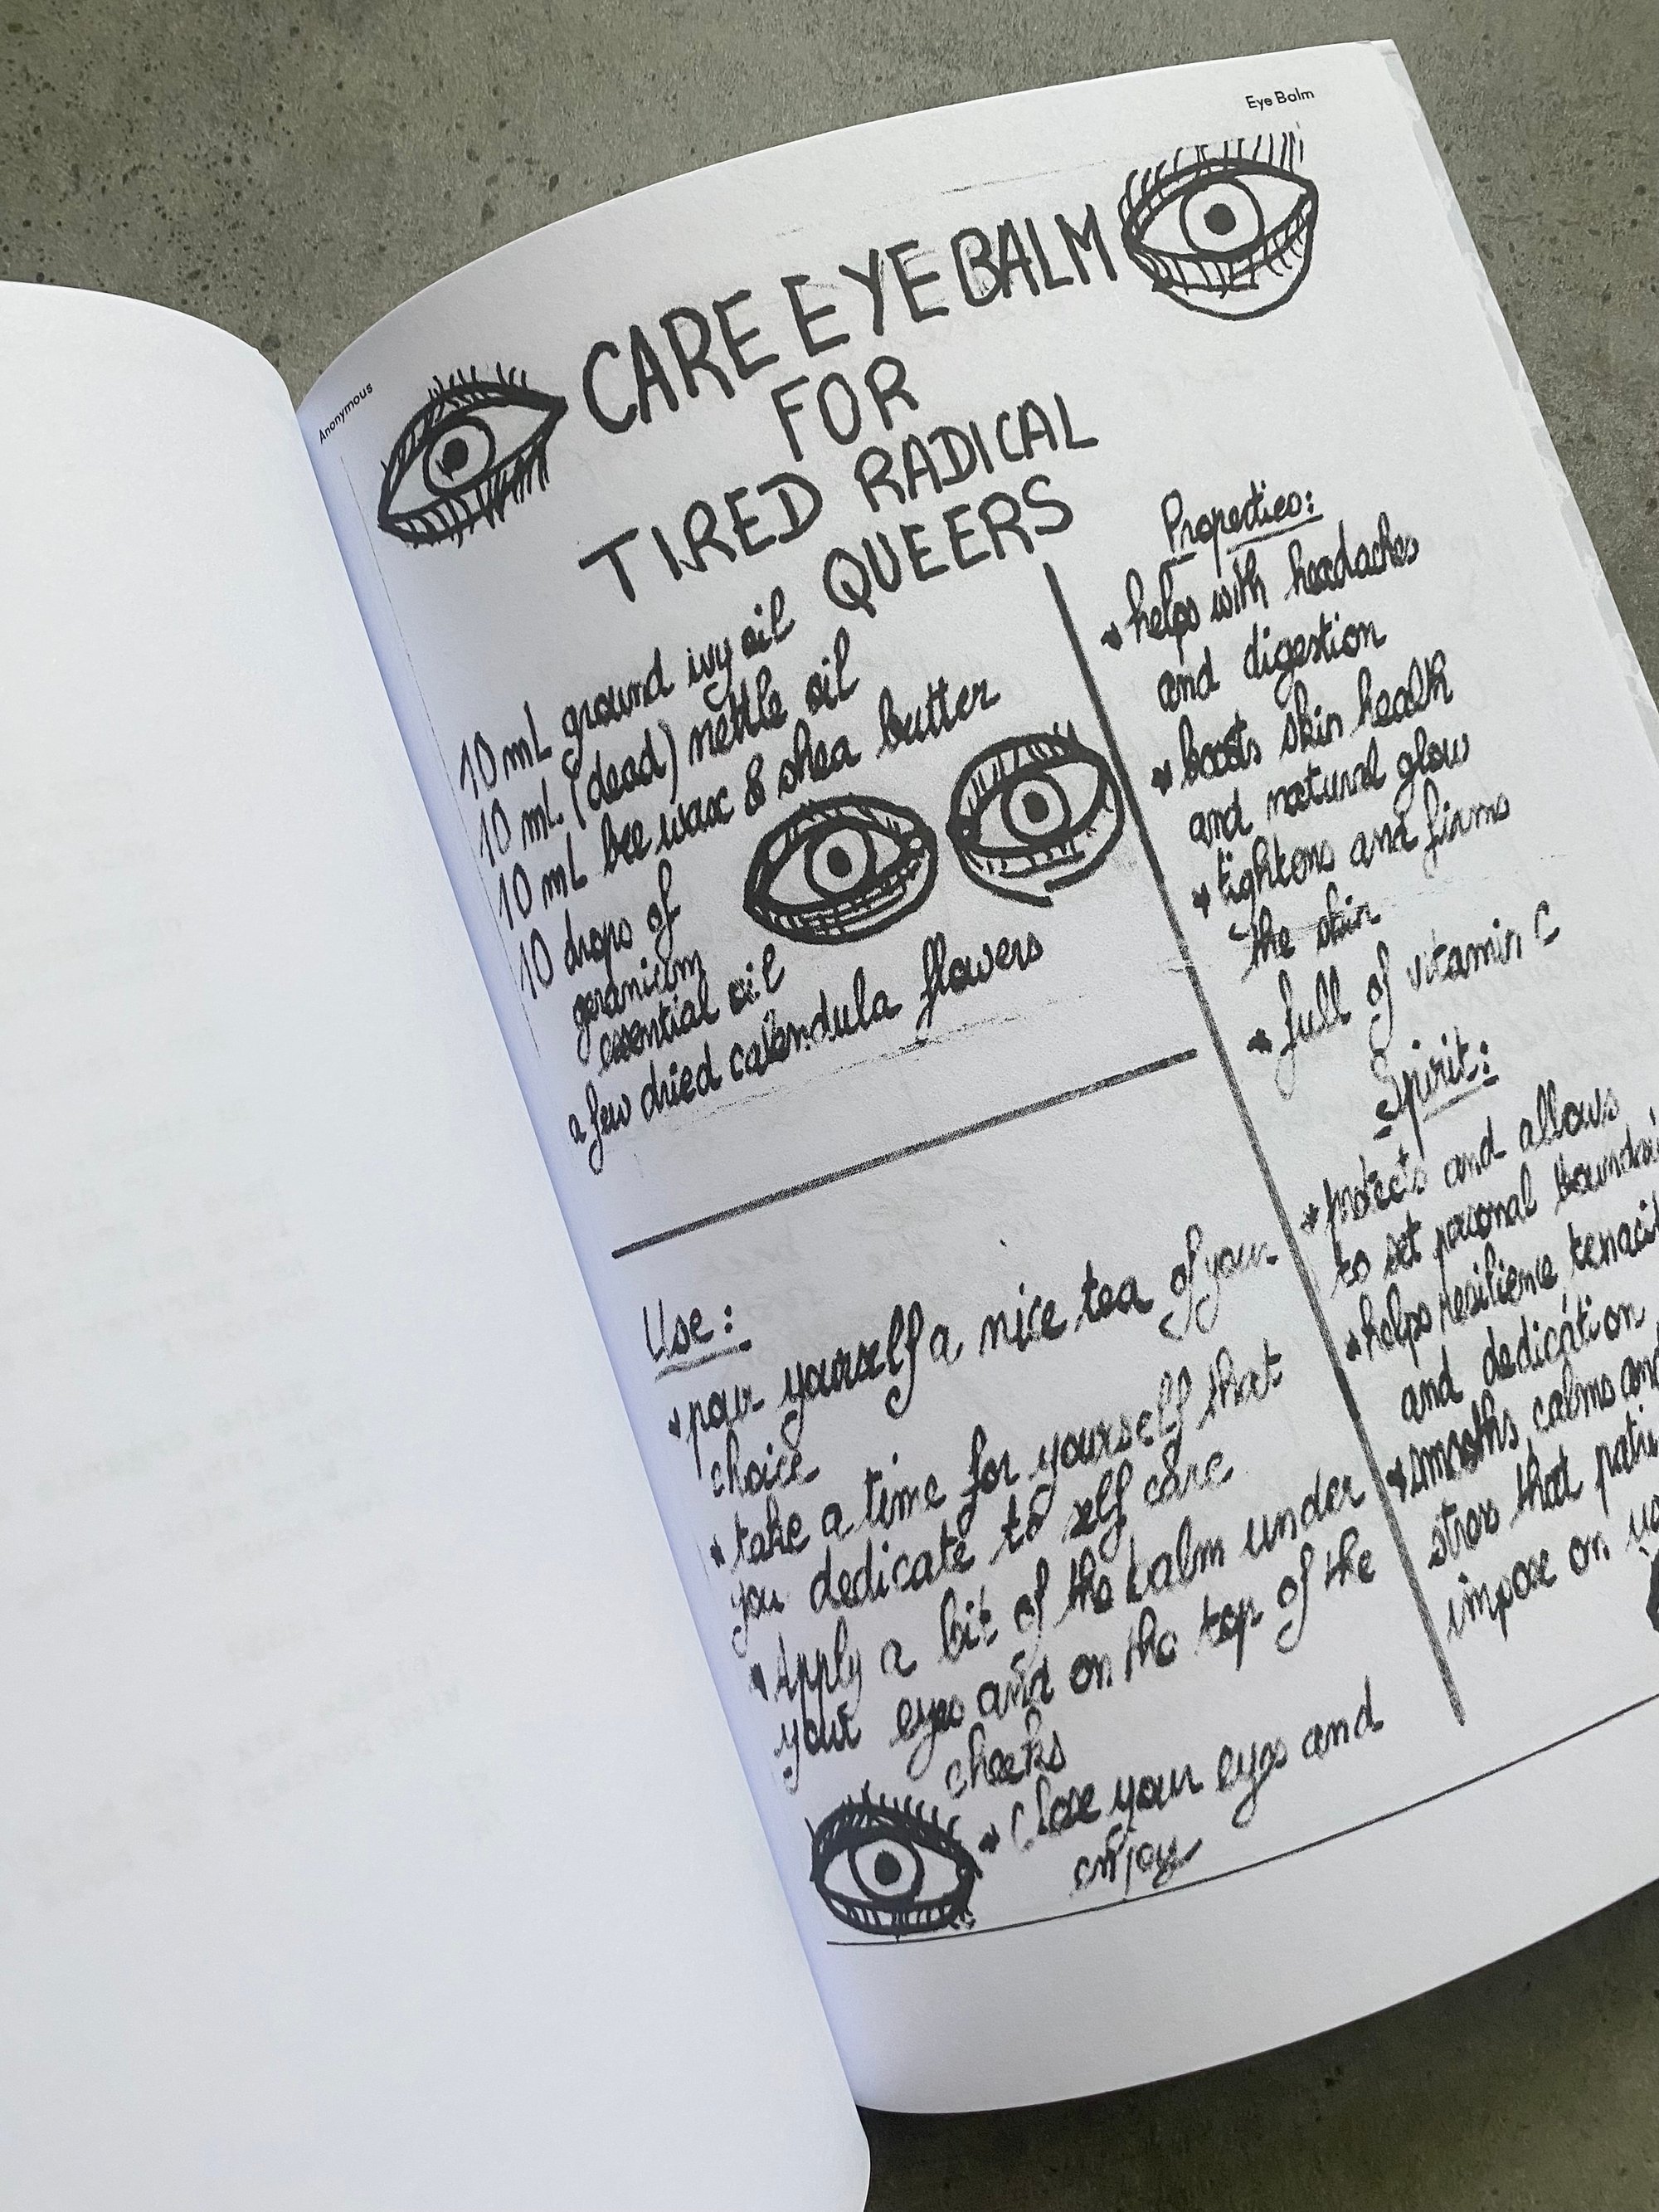 Anonymous
Eye Balm
CARE EYE BALM
FOR
TIRED RADICAL
QUEERS
10 mL ground ivy oil
10 mL (dead) nettle oil
10 mL bee wax & shea butter
10 drops of
geranium
essential oil
a few dried calendula flowers
Use:
pour yourself a nice tea of your
choice
take a time for yourself that
you dedicate to self care
Apply a bit of the balm under
your eyes and on the top of the
cheeks
Close your eyes and
enjoy
Properties:
helps with headaches
and digestion
boosts skin health
and natural glow
tightens and firms
the skin
full of vitamin C
Spirit:
protects and allows
to set personal
helps resilience
and dedication
smooths calms and
stress that
impose on